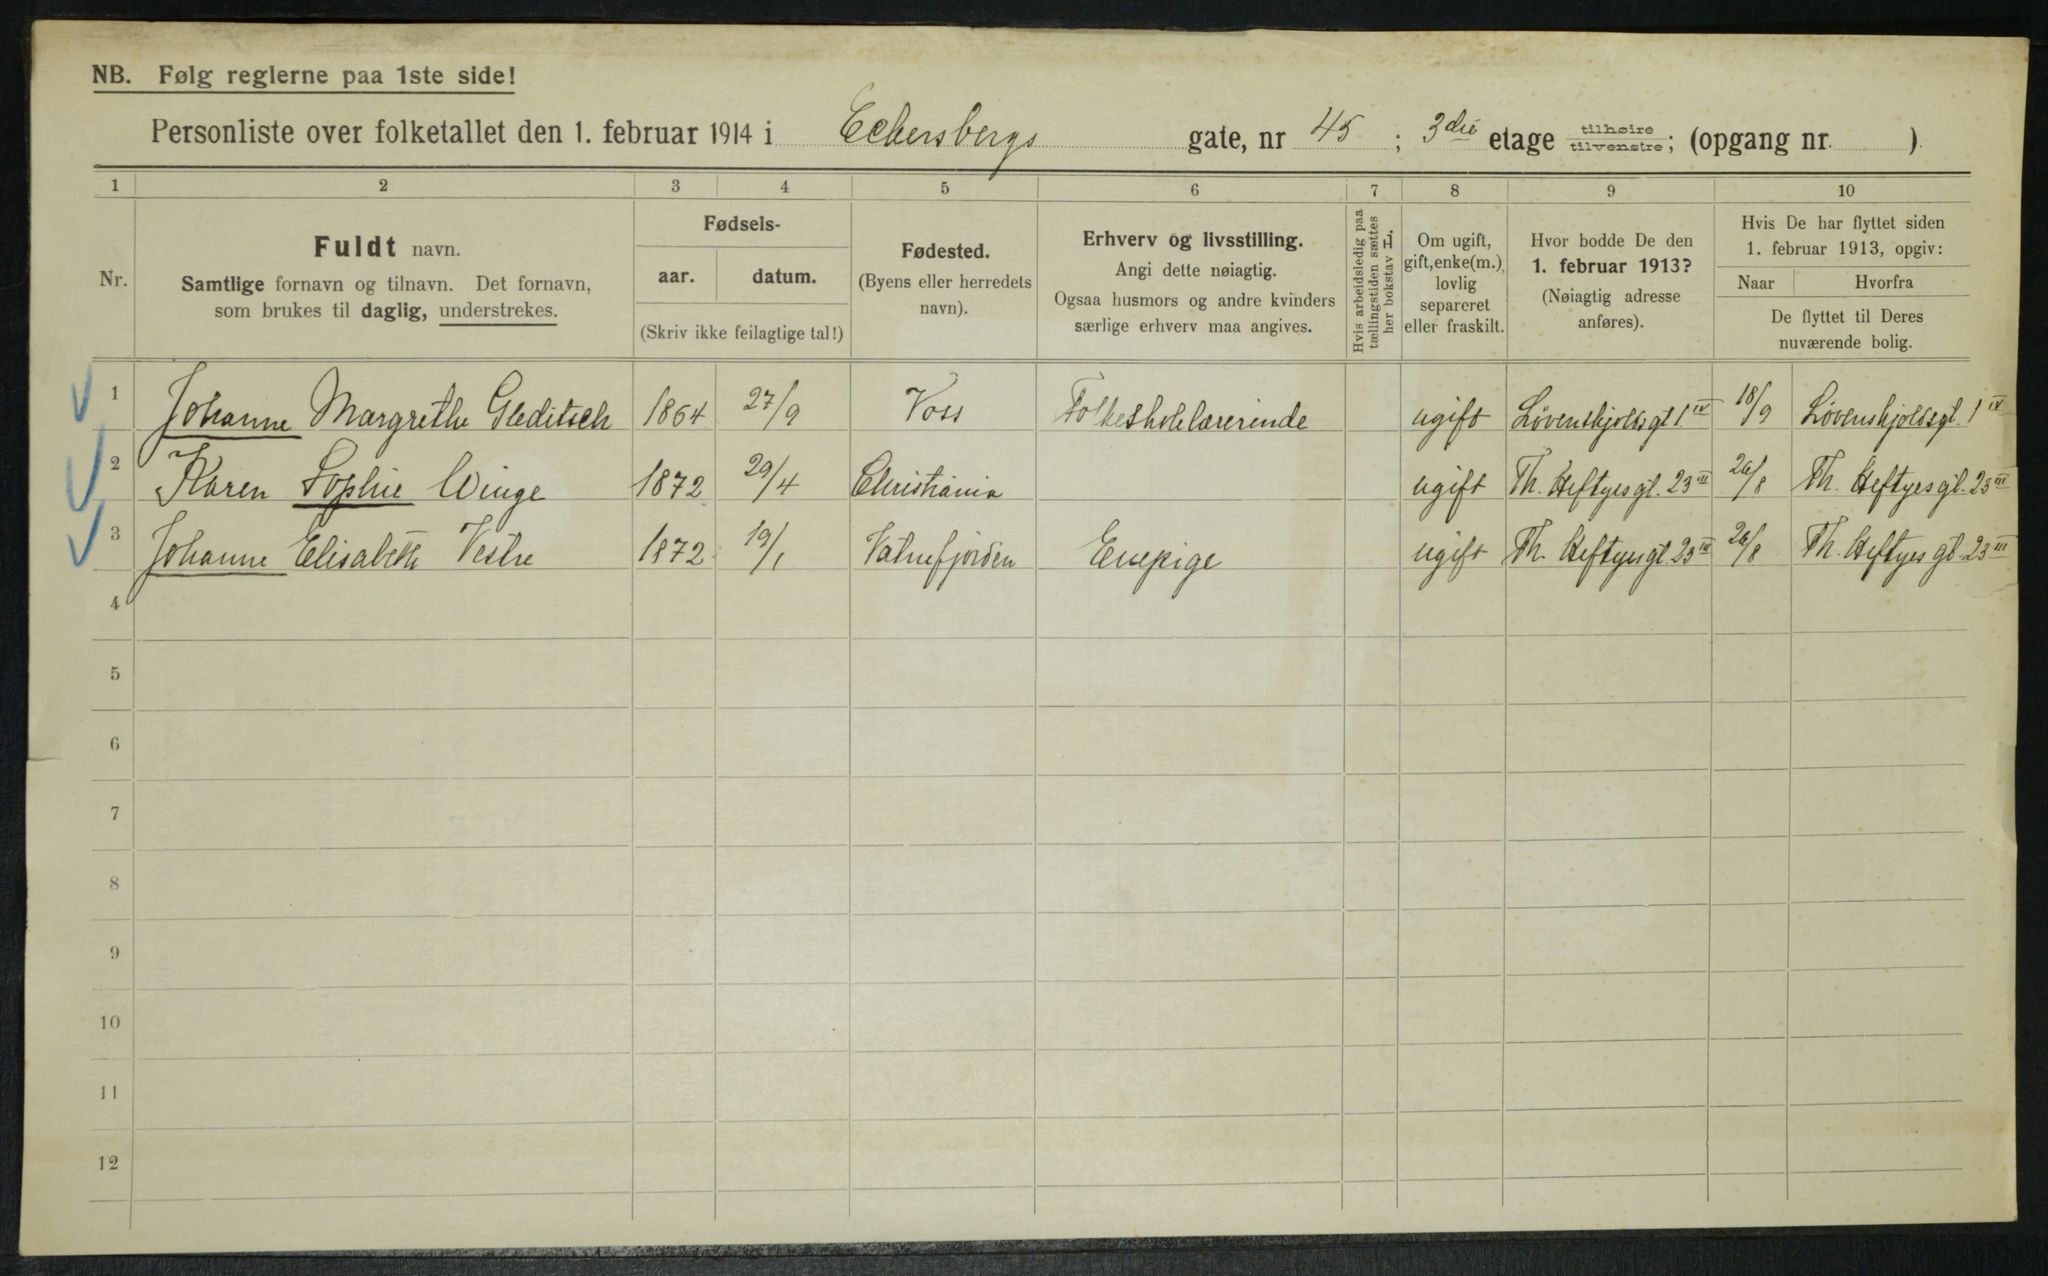 NB. Følg reglerne paa 1ste side!
Personliste over folketallet den 1. februar 1914 i Eckersbergs gate, nr 45; 3die etage tilhøire tilvenstre; (opgang nr. ).
1 2 3 4 5 6 7 8 9 10
Nr.
Fuldt navn.
Samtlige fornavn og tilnavn. Det fornavn,
som brukes til daglig, understrekes.
Fødsels-
aar. datum.
(Skriv ikke feilagtige tal!)
Fødested.
(Byens eller herredets
navn).
Erhverv og livsstilling.
Angi dette nøiagtig.
Ogsaa husmors og andre kvinders
særlige erhverv maa angives.
Hvis arbeidsledig paa
tællingstiden sættes
her bokstav L.
Om ugift,
gift, enke(m.),
lovlig
separeret
eller fraskilt.
Hvor bodde De den
1. februar 1913?
(Nøiagtig adresse
anføres).
Hvis De har flyttet siden
1. februar 1913, opgiv:
Naar Hvorfra
De flyttet til Deres
nuværende bolig.
1 Johanne Margrethe Gleditsch 1864 27/9 Voss Folkeskolelærerinde ugift Løvenskjoldsgt 1 IV 18/9 Løvenskjoldsgt. 1 IV
2 Karen Sophie Winge 1872 29/4 Christiania ugift Th. Heftyesgt. 23 III 26/8 Th. Heftyesgt. 23 III
3 Johanne Elisabeth Vestre 1872 19/1 Vatnefjorden Enepige ugift Th. Heftyesgt 23 III 26/8 Th. Heftyes gt. 23 III
4
5
6
7
8
9
10
11
12